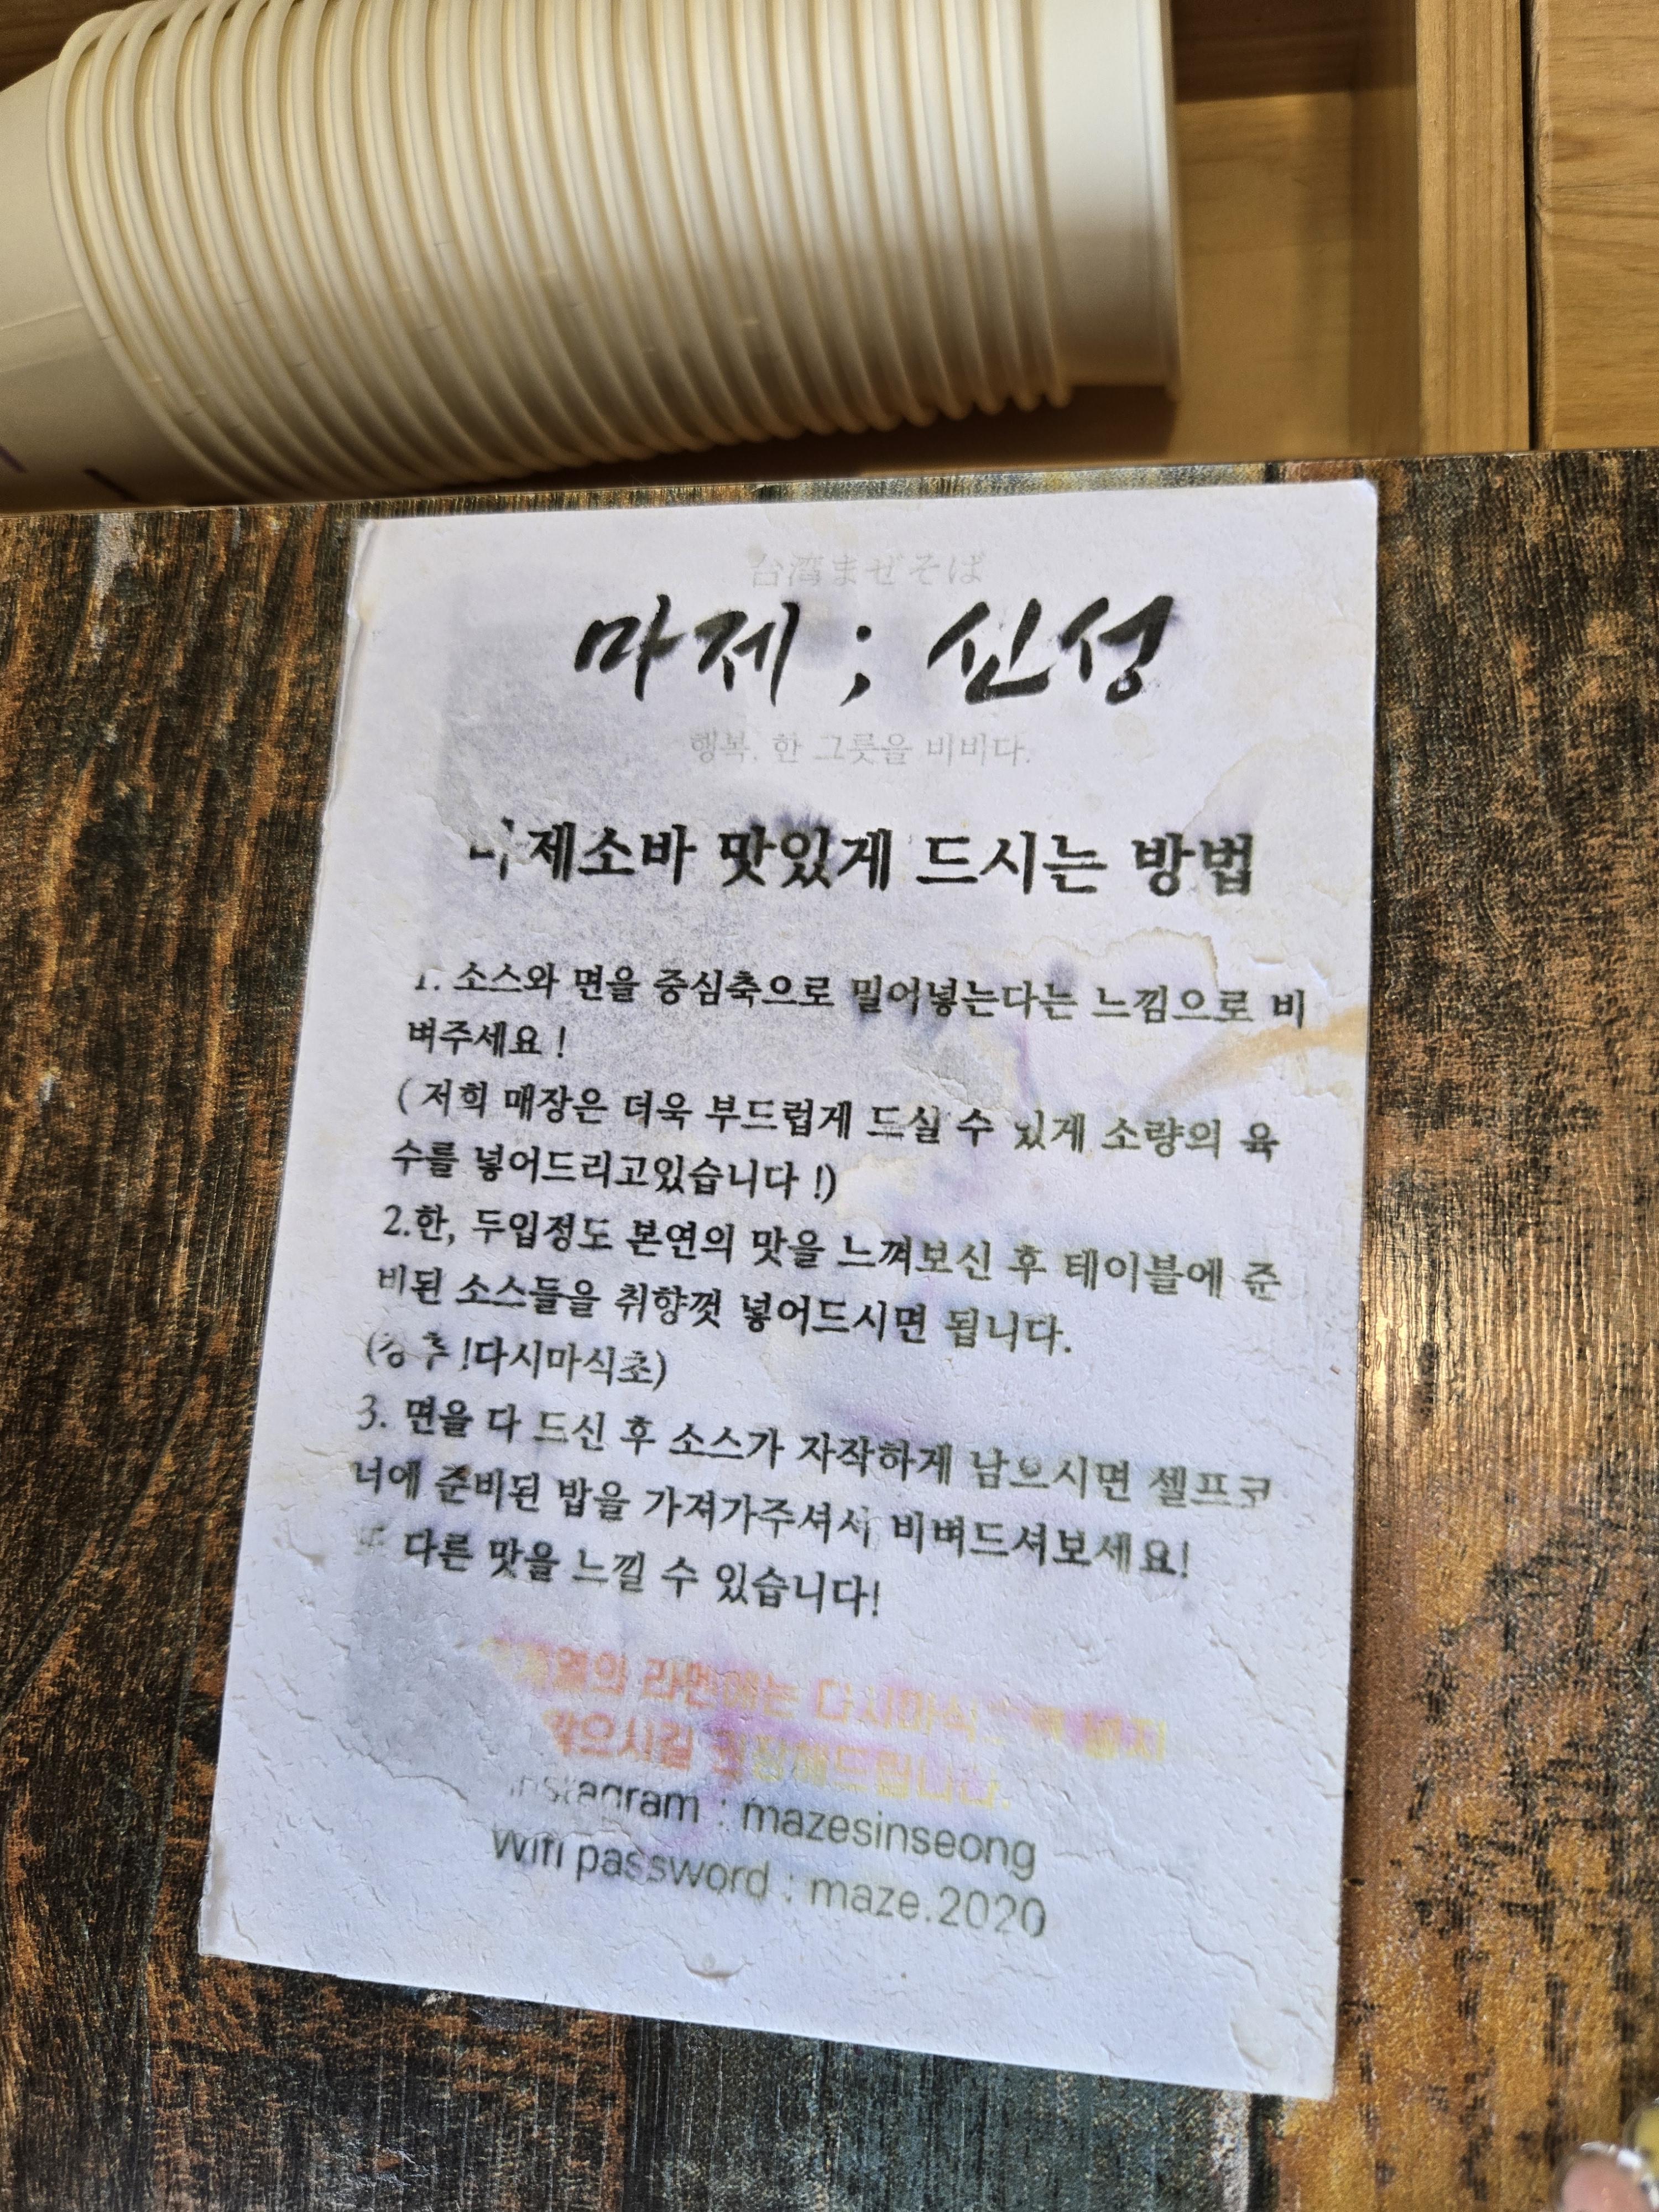 台湾まぜそば
마제 ; 신성
행복. 한 그릇을 비비다.
마제소바 맛있게 드시는 방법
1. 소스와 면을 중심축으로 밀어넣는다는 느낌으로 비
벼주세요 !
( 저희 매장은 더욱 부드럽게 드실 수 있게 소량의 육
수를 넣어드리고있습니다 !)
2.한, 두입정도 본연의 맛을 느껴보신 후 테이블에 준
비된 소스들을 취향껏 넣어드시면 됩니다.
(강추!다시마식초)
3. 면을 다 드신 후 소스가 자작하게 남으시면 셀프코
너에 준비된 밥을 가져가주셔서 비벼드셔보세요!
또 다른 맛을 느낄 수 있습니다!
라멘에는
않으시길 권장해드립니다.
instagram : mazesinseong
Wifi password : maze.2020